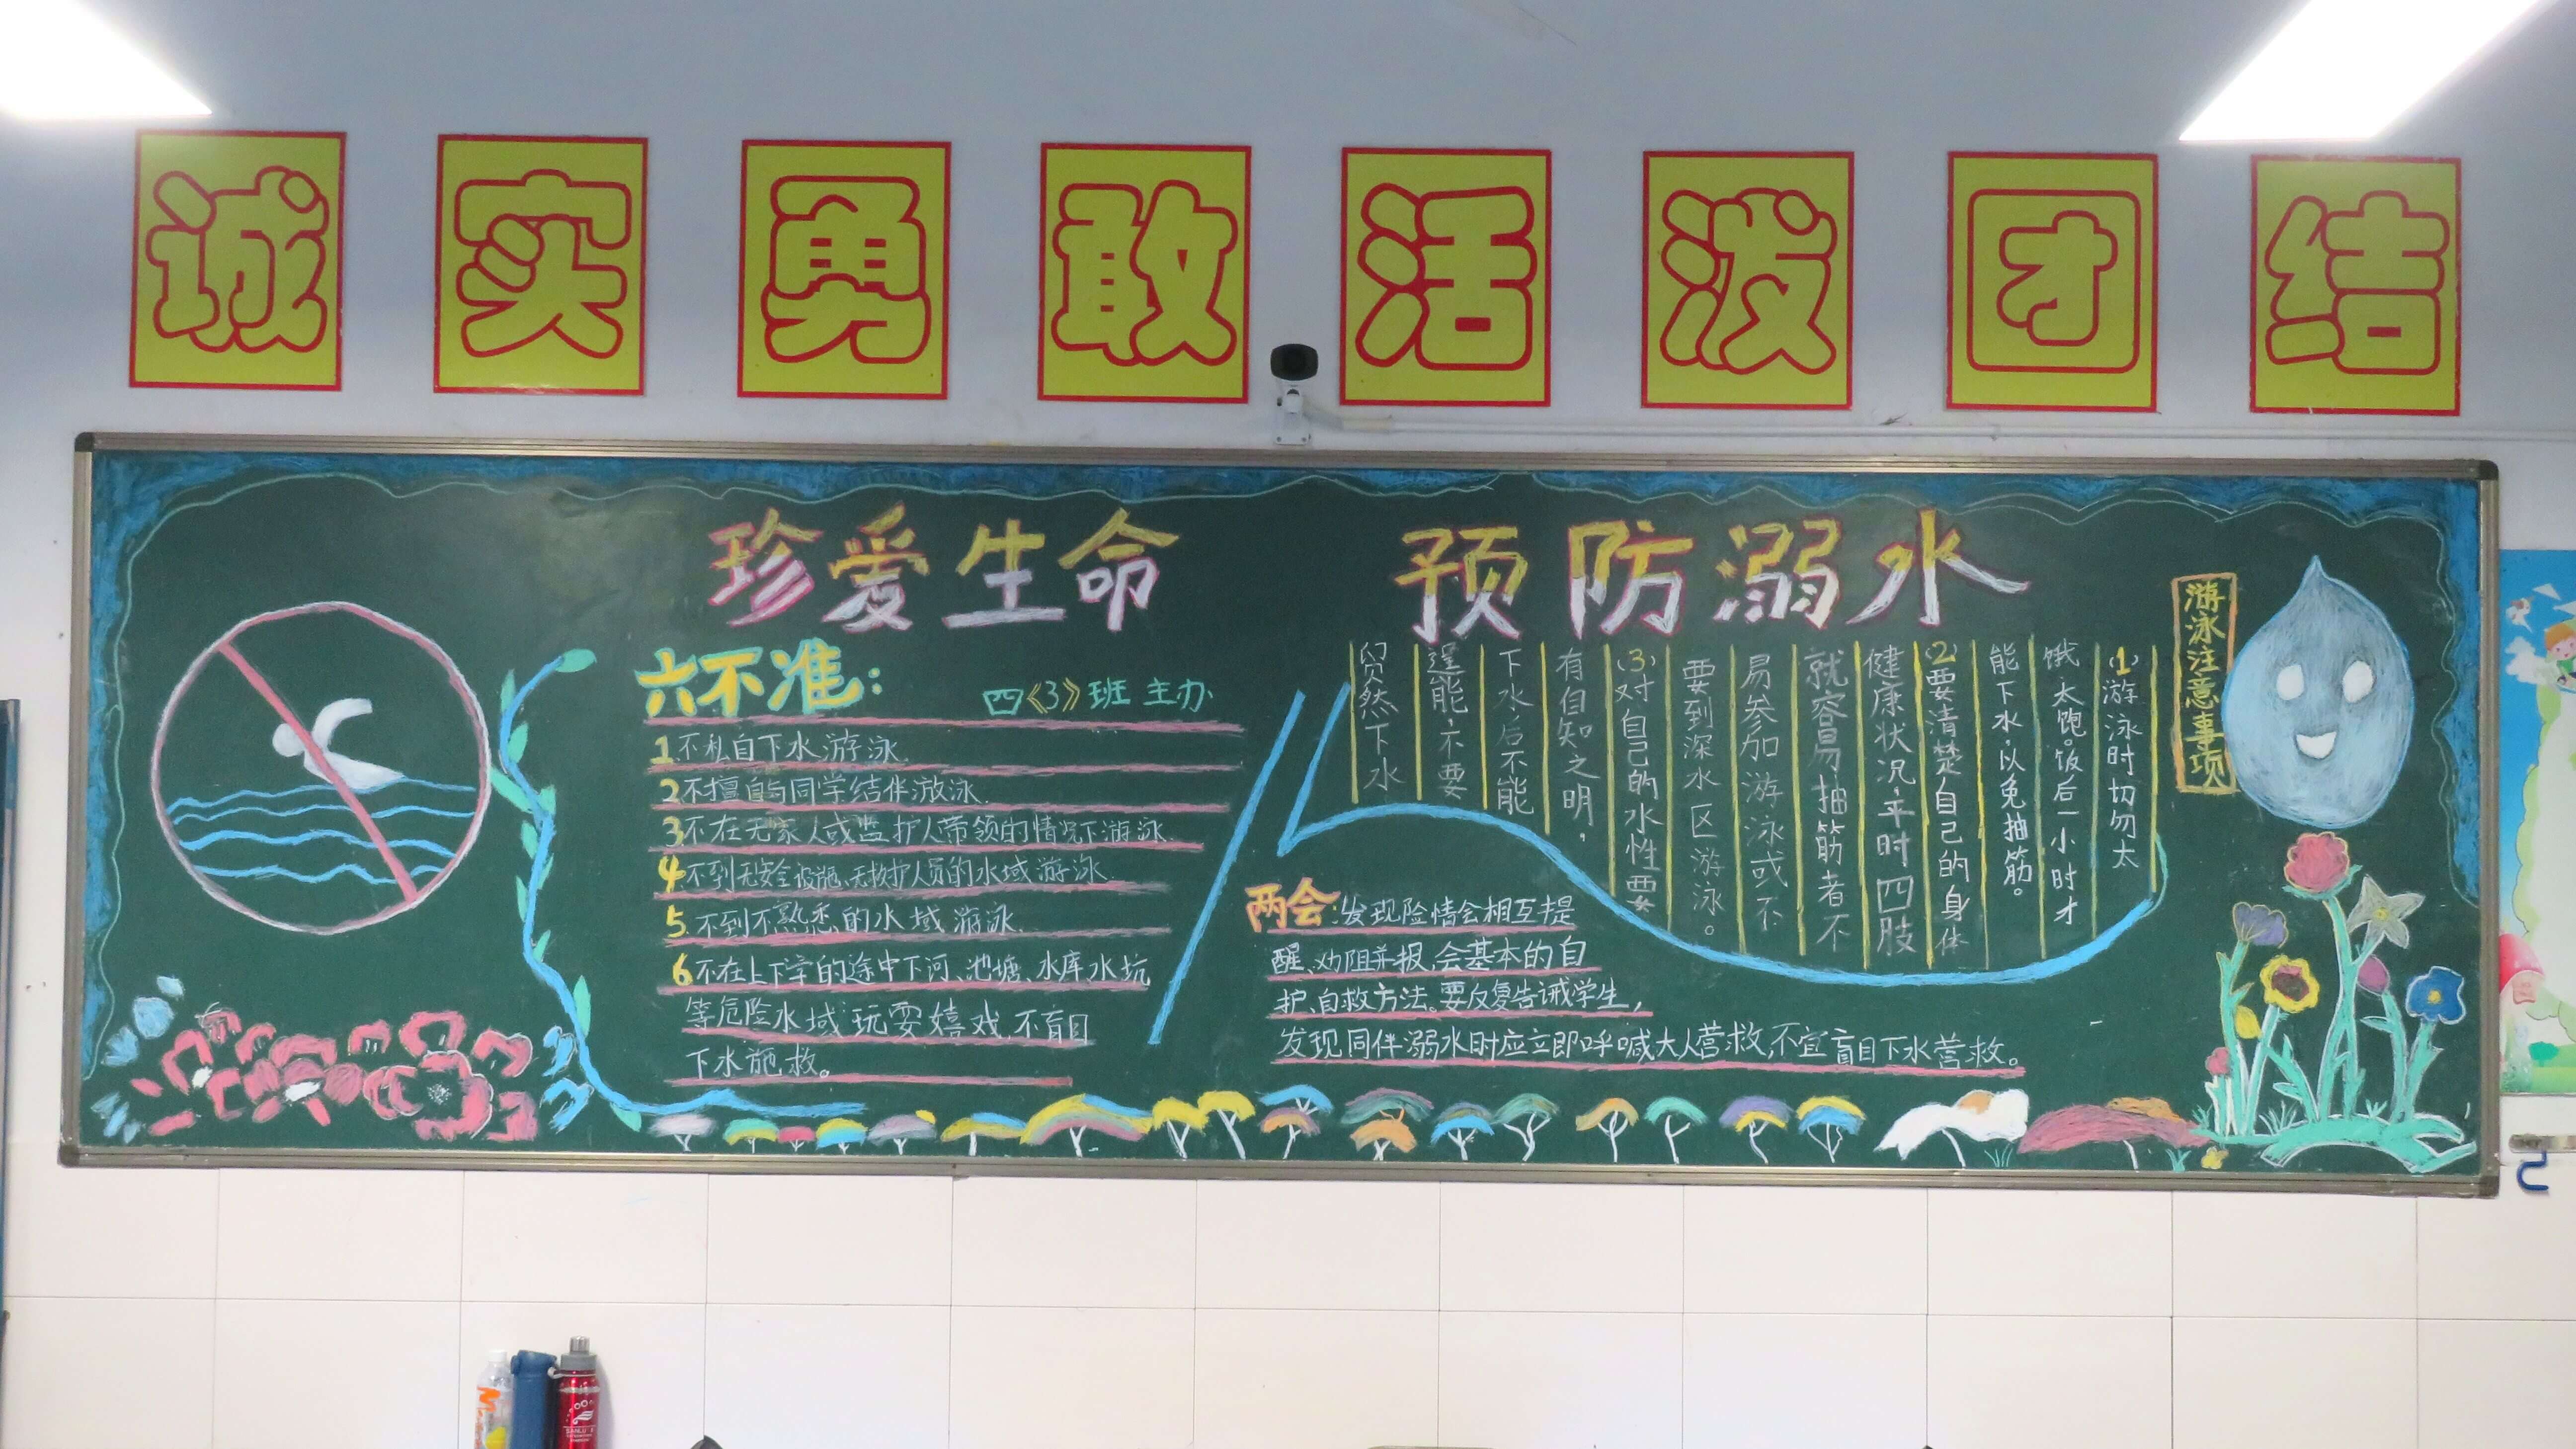 诚实勇敢活泼团结
珍爱生命 预防溺水
六不准：
四《3》班 主办
1.不私自下水游泳.
2.不擅自与同学结伴游泳.
3.不在无家人或监护人带领的情况下游泳.
4.不到无安全设施、无救护人员的水域游泳.
5.不到不熟悉的水域游泳.
6.不在上下学的途中下河、池塘、水库水坑
等危险水域玩耍嬉戏,不盲目
下水施救。
游泳注意事项
(1)游泳时切勿太
饿、太饱。饭后一小时才
能下水,以免抽筋。
(2)要清楚自己的身体
健康状况,平时四肢
就容易抽筋者不
易参加游泳或不
要到深水区游泳。
(3)对自己的水性要
有自知之明,
下水后不能
逞能,不要
贸然下水
两会:发现险情会相互提
醒、劝阻并报,会基本的自
护、自救方法。要反复告诫学生,
发现同伴溺水时应立即呼喊大人营救,不宜盲目下水营救。